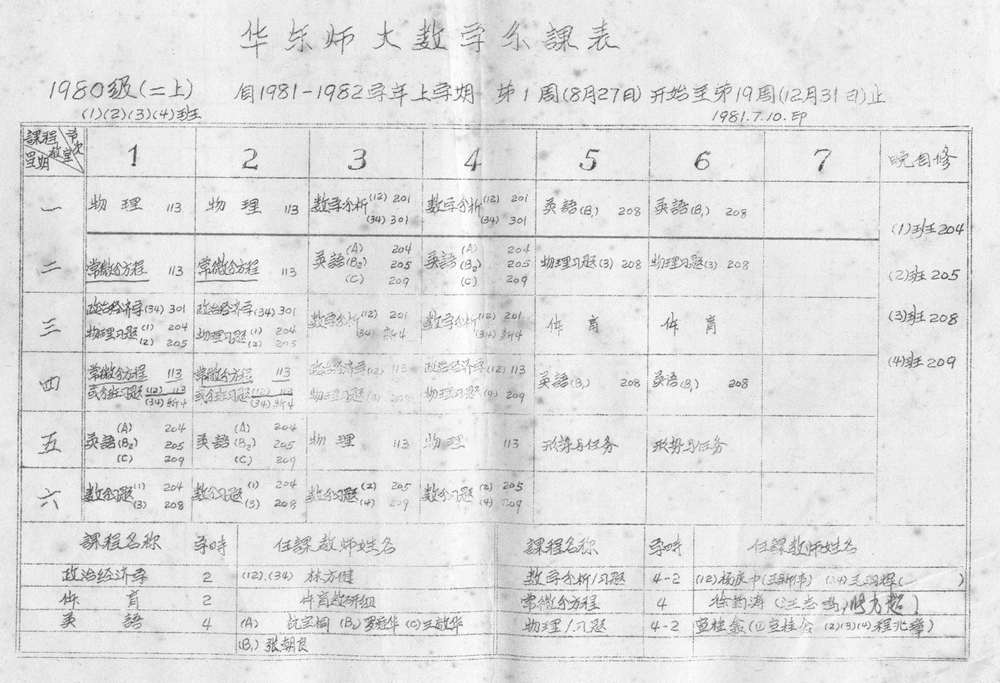 华东师大数学系課表
1980级(二上) 自1981-1982学年上学期 第1周(8月27日)开始至第19周(12月31日)止
(1)(2)(3)(4)班 1981.7.10.印
課程 节次 教室 星期 1 2 3 4 5 6 7 晚自修
一 物理 113 物理 113 数学分析(12) 201 (34) 301 数学分析(12) 201 (34) 301 英語(B₁) 208 英語(B₁) 208
(1)班204
二 常微分方程 113 常微分方程 113 英語(A) 204 (B₂) 205 (C) 209 英語(A) 204 (B₂) 205 (C) 209 物理习题(3) 208 物理习题(3) 208
(2)班205
三 政治经济学(34) 301 物理习题(1) 204 (2) 205 政治经济学(34) 301 物理习题(1) 204 (2) 205 数学分析(12) 201 (34) 新4 数学分析(12) 201 (34) 新4 体育 体育
(3)班208
四 常微分方程 113 或分班习题(12) 113 (34) 新4 常微分方程 113 或分班习题(12) 113 (34) 新4 政治经济学(12) 113 物理习题(4) 209 政治经济学(12) 113 物理习题(4) 209 英語(B₁) 208 英語(B₁) 208
(4)班209
五 英語(A) 204 (B₂) 205 (C) 209 英語(A) 204 (B₂) 205 (C) 209 物理 113 物理 113 形势与任务 形势与任务
六 数分习题(1) 204 (3) 208 数分习题(1) 204 (3) 208 数分习题(2) 205 (4) 209 数分习题(2) 205 (4) 209
課程名称 学时 任課教师姓名 課程名称 学时 任課教师姓名
政治经济学 2 (12).(34) 林方健 数学分析/习题 4-2 (12)
体育 2 体育教研组 常微分方程 4
英語 4 (A) (B₂) (C)王敏华 物理/习题 4-2 (2)(3)(4)程北
(B₁) 张朝良